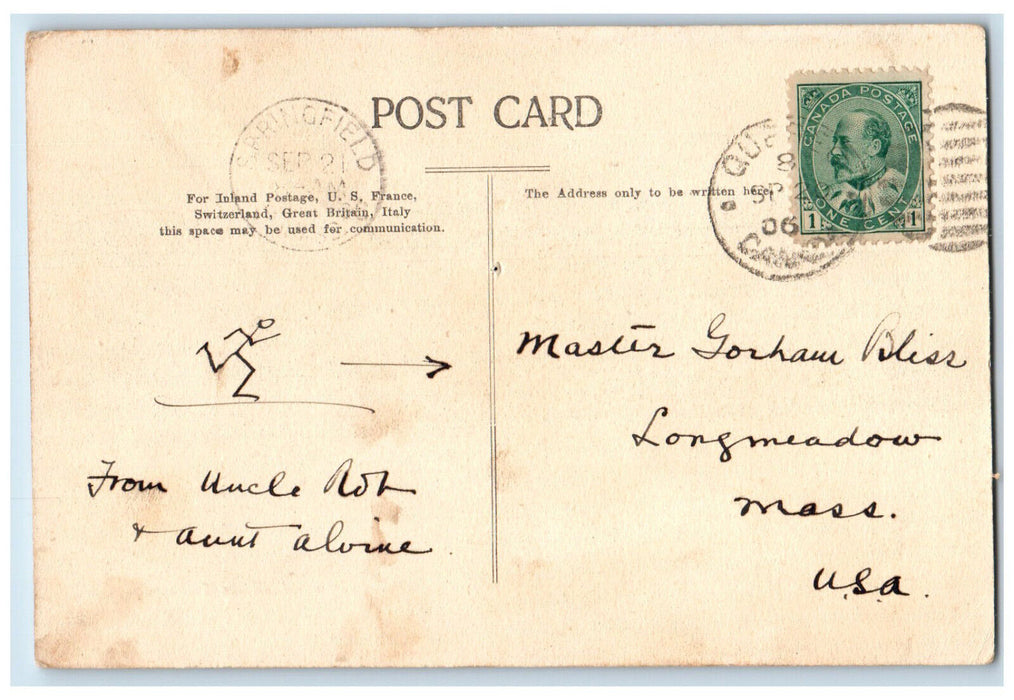 POST CARD
SPRINGFIELD
SEP 21
For Inland Postage, U. S. France,
Switzerland, Great Britain, Italy
this space may be used for communication.
The Address only to be written here.
CANADA POSTAGE
1 ONE CENT 1
06
Master Gorham Bliss
Longmeadow
Mass.
U.S.A.
From Uncle Rob
+ aunt alvine.